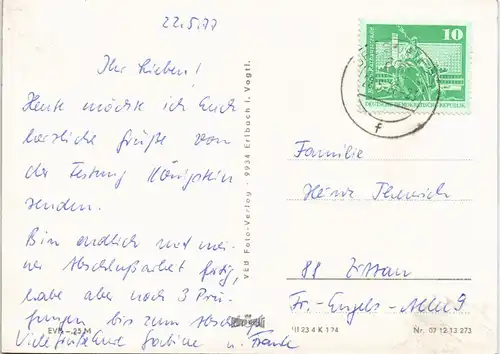 22.5.77
Ihr Lieben!
Heute möchte ich Euch
herzliche Grüße von
der Festung Königstein
senden.
Bin endlich mit mei-
ner Abschlußarbeit fertig,
habe aber noch 3 Prü-
fungen bis zum
Viele Grüße Eure u. Frank
EVP: -,25 M
VEB Foto-Verlag · 9934 Erlbach i. Vogtl.
10
DEUTSCHE DEMOKRATISCHE REPUBLIK
f
Familie
Heinz
88 Zittau
Fr.-Engels-Allee 9
III 23 4 K 1 74
Nr. 07 12 13 273